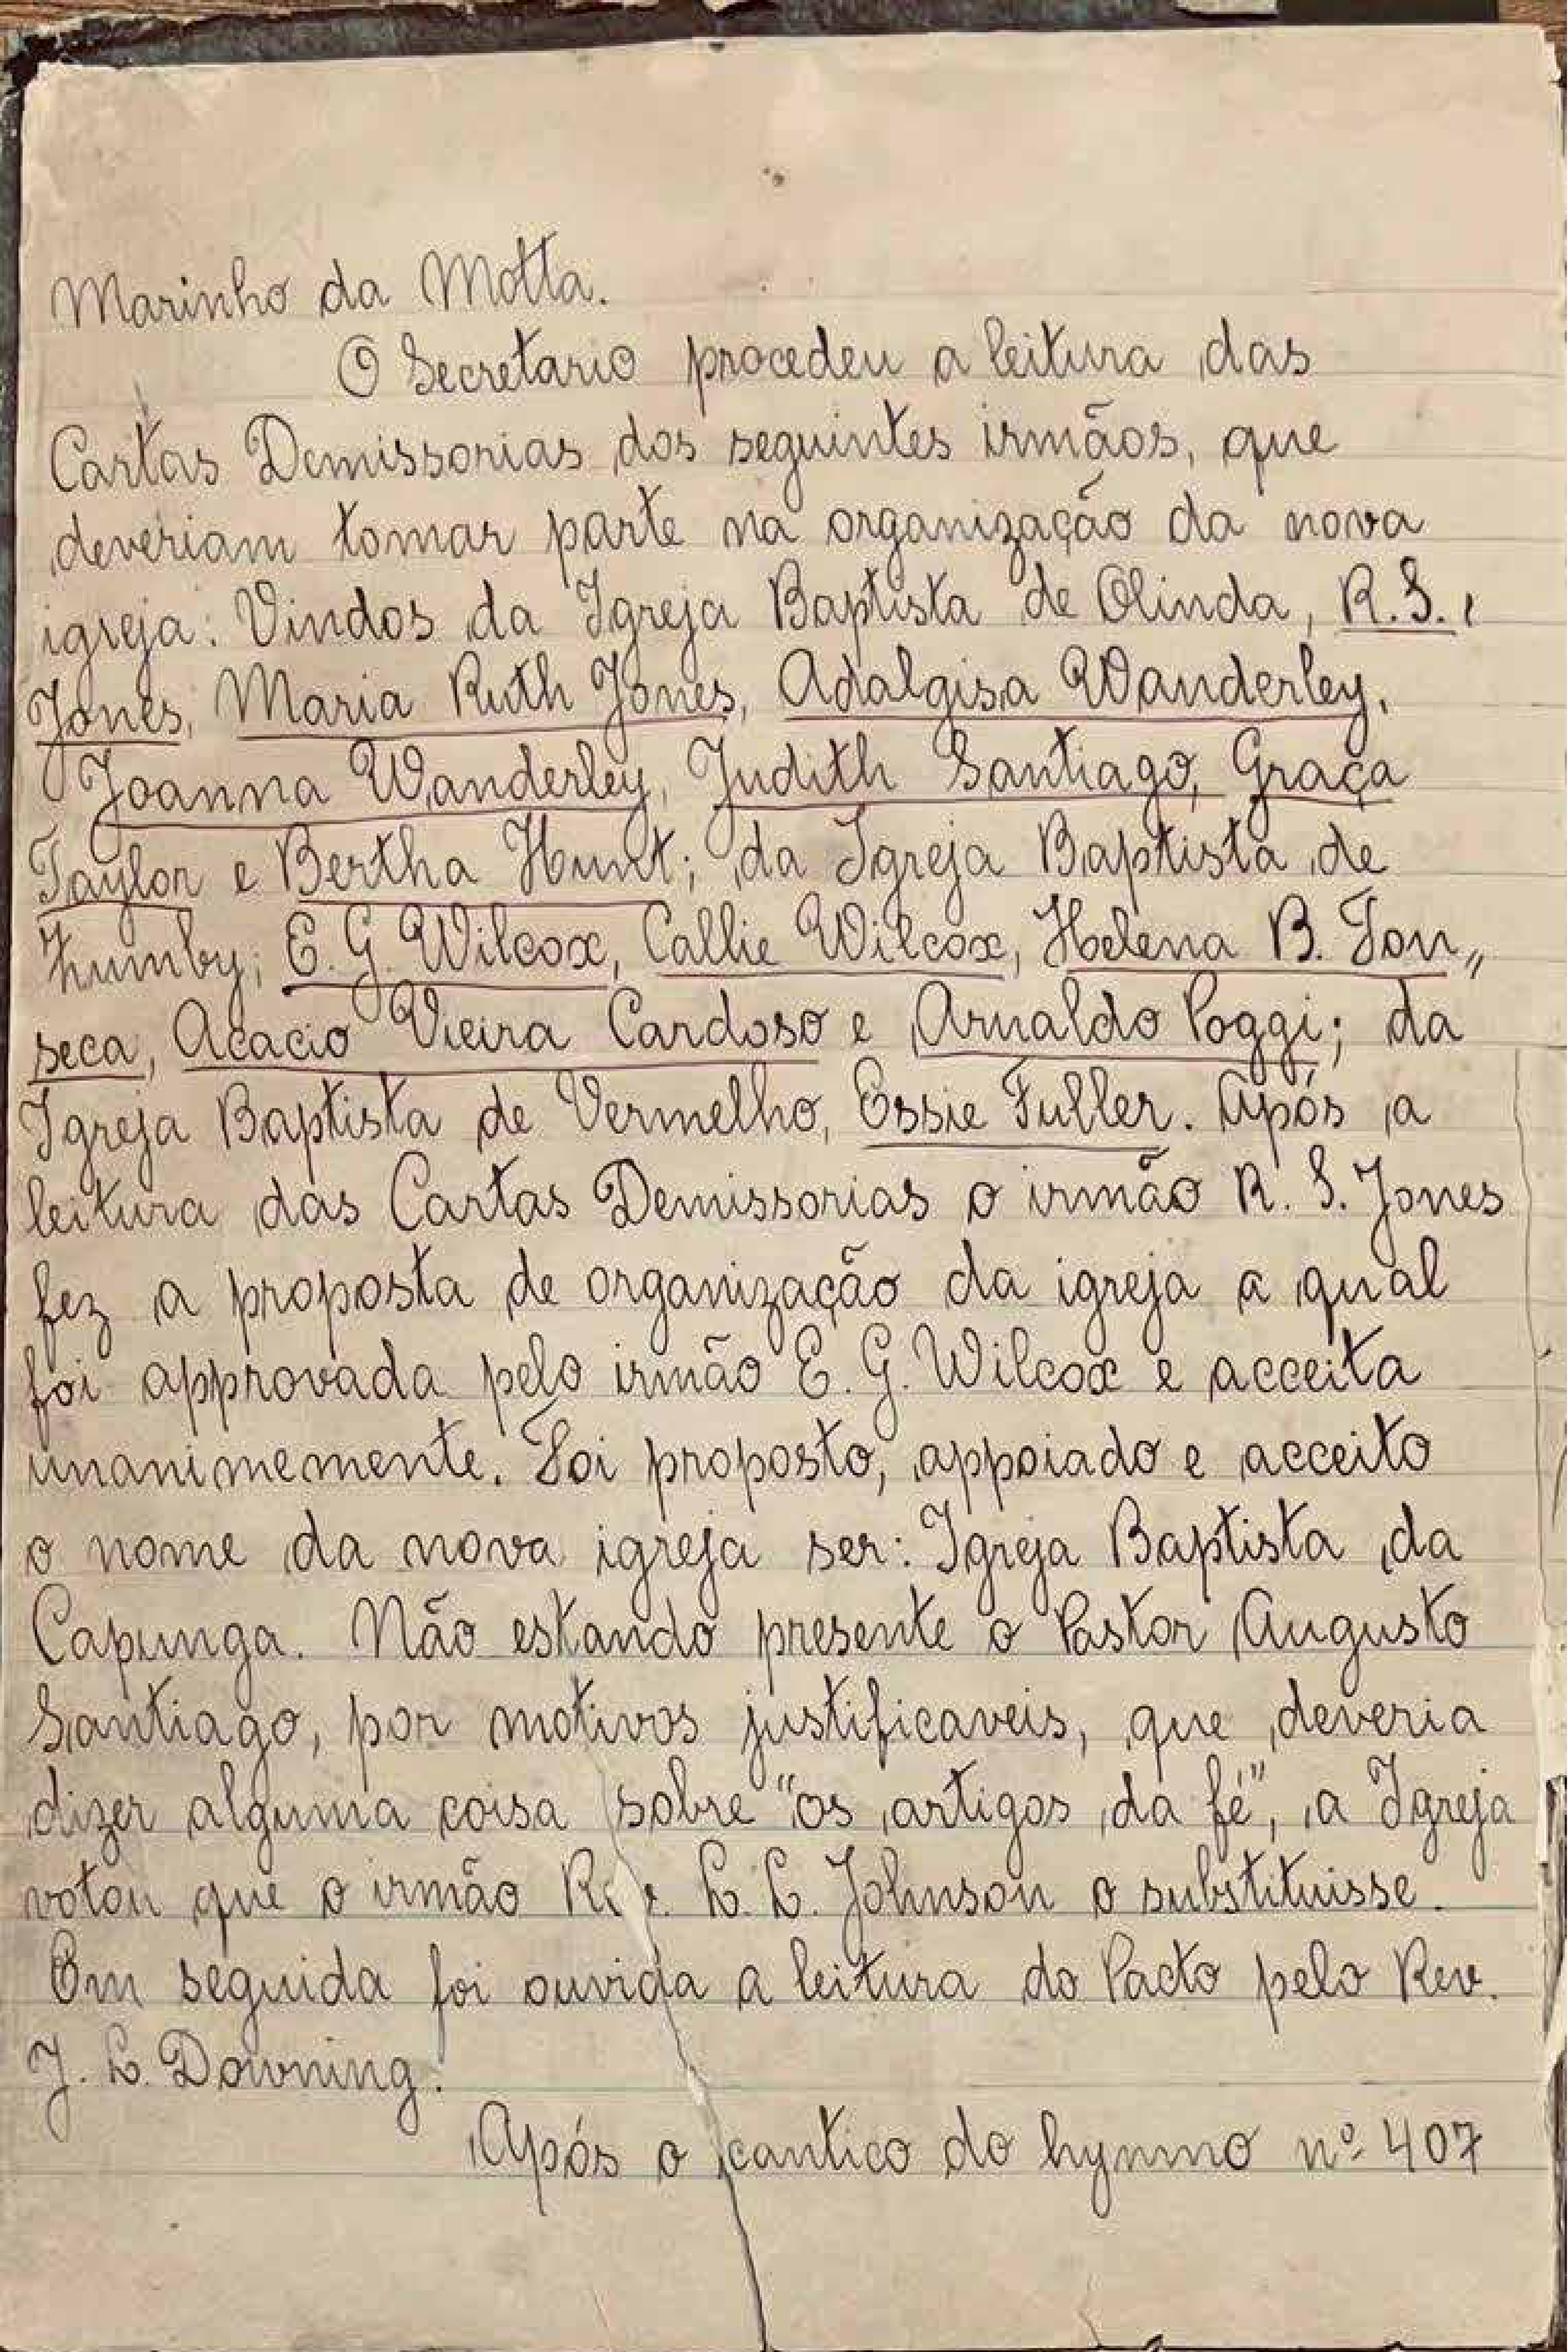 Marinho da Motta.
O Secretario procedeu a leitura das
Cartas Demissorias dos seguintes irmãos, que
deveriam tomar parte na organização da nova
igreja: Vindos da Igreja Baptista de Olinda, R. S.,
Jones, Maria Ruth Jones, Adalgisa Wanderley,
Joanna Wanderley, Judith Santiago, Graça
Taylor e Bertha Hunt; da Igreja Baptista de
Zumby; E. G. Wilcox, Callie Wilcox, Helena B. Fon„
seca, Acacio Vieira Cardoso e Arnaldo Poggi; da
Igreja Baptista de Vermelho, Essie Fuller. Após a
leitura das Cartas Demissorias o irmão R. S. Jones
fez a proposta de organização da igreja a qual
foi approvada pelo irmão E. G. Wilcox e acceita
unanimemente. Foi proposto, appoiado e acceito
o nome da nova igreja ser: Igreja Baptista da
Capunga. Não estando presente o Pastor Augusto
Santiago, por motivos justificaveis, que deveria
dizer alguma coisa sobre "os artigos da fé", a Igreja
votou que o irmão Rev. L. L. Johnson o substituisse.
Em seguida foi ouvida a leitura do Pacto pelo Rev.
J. L. Downing.
Após o cantico do hymno nº 407